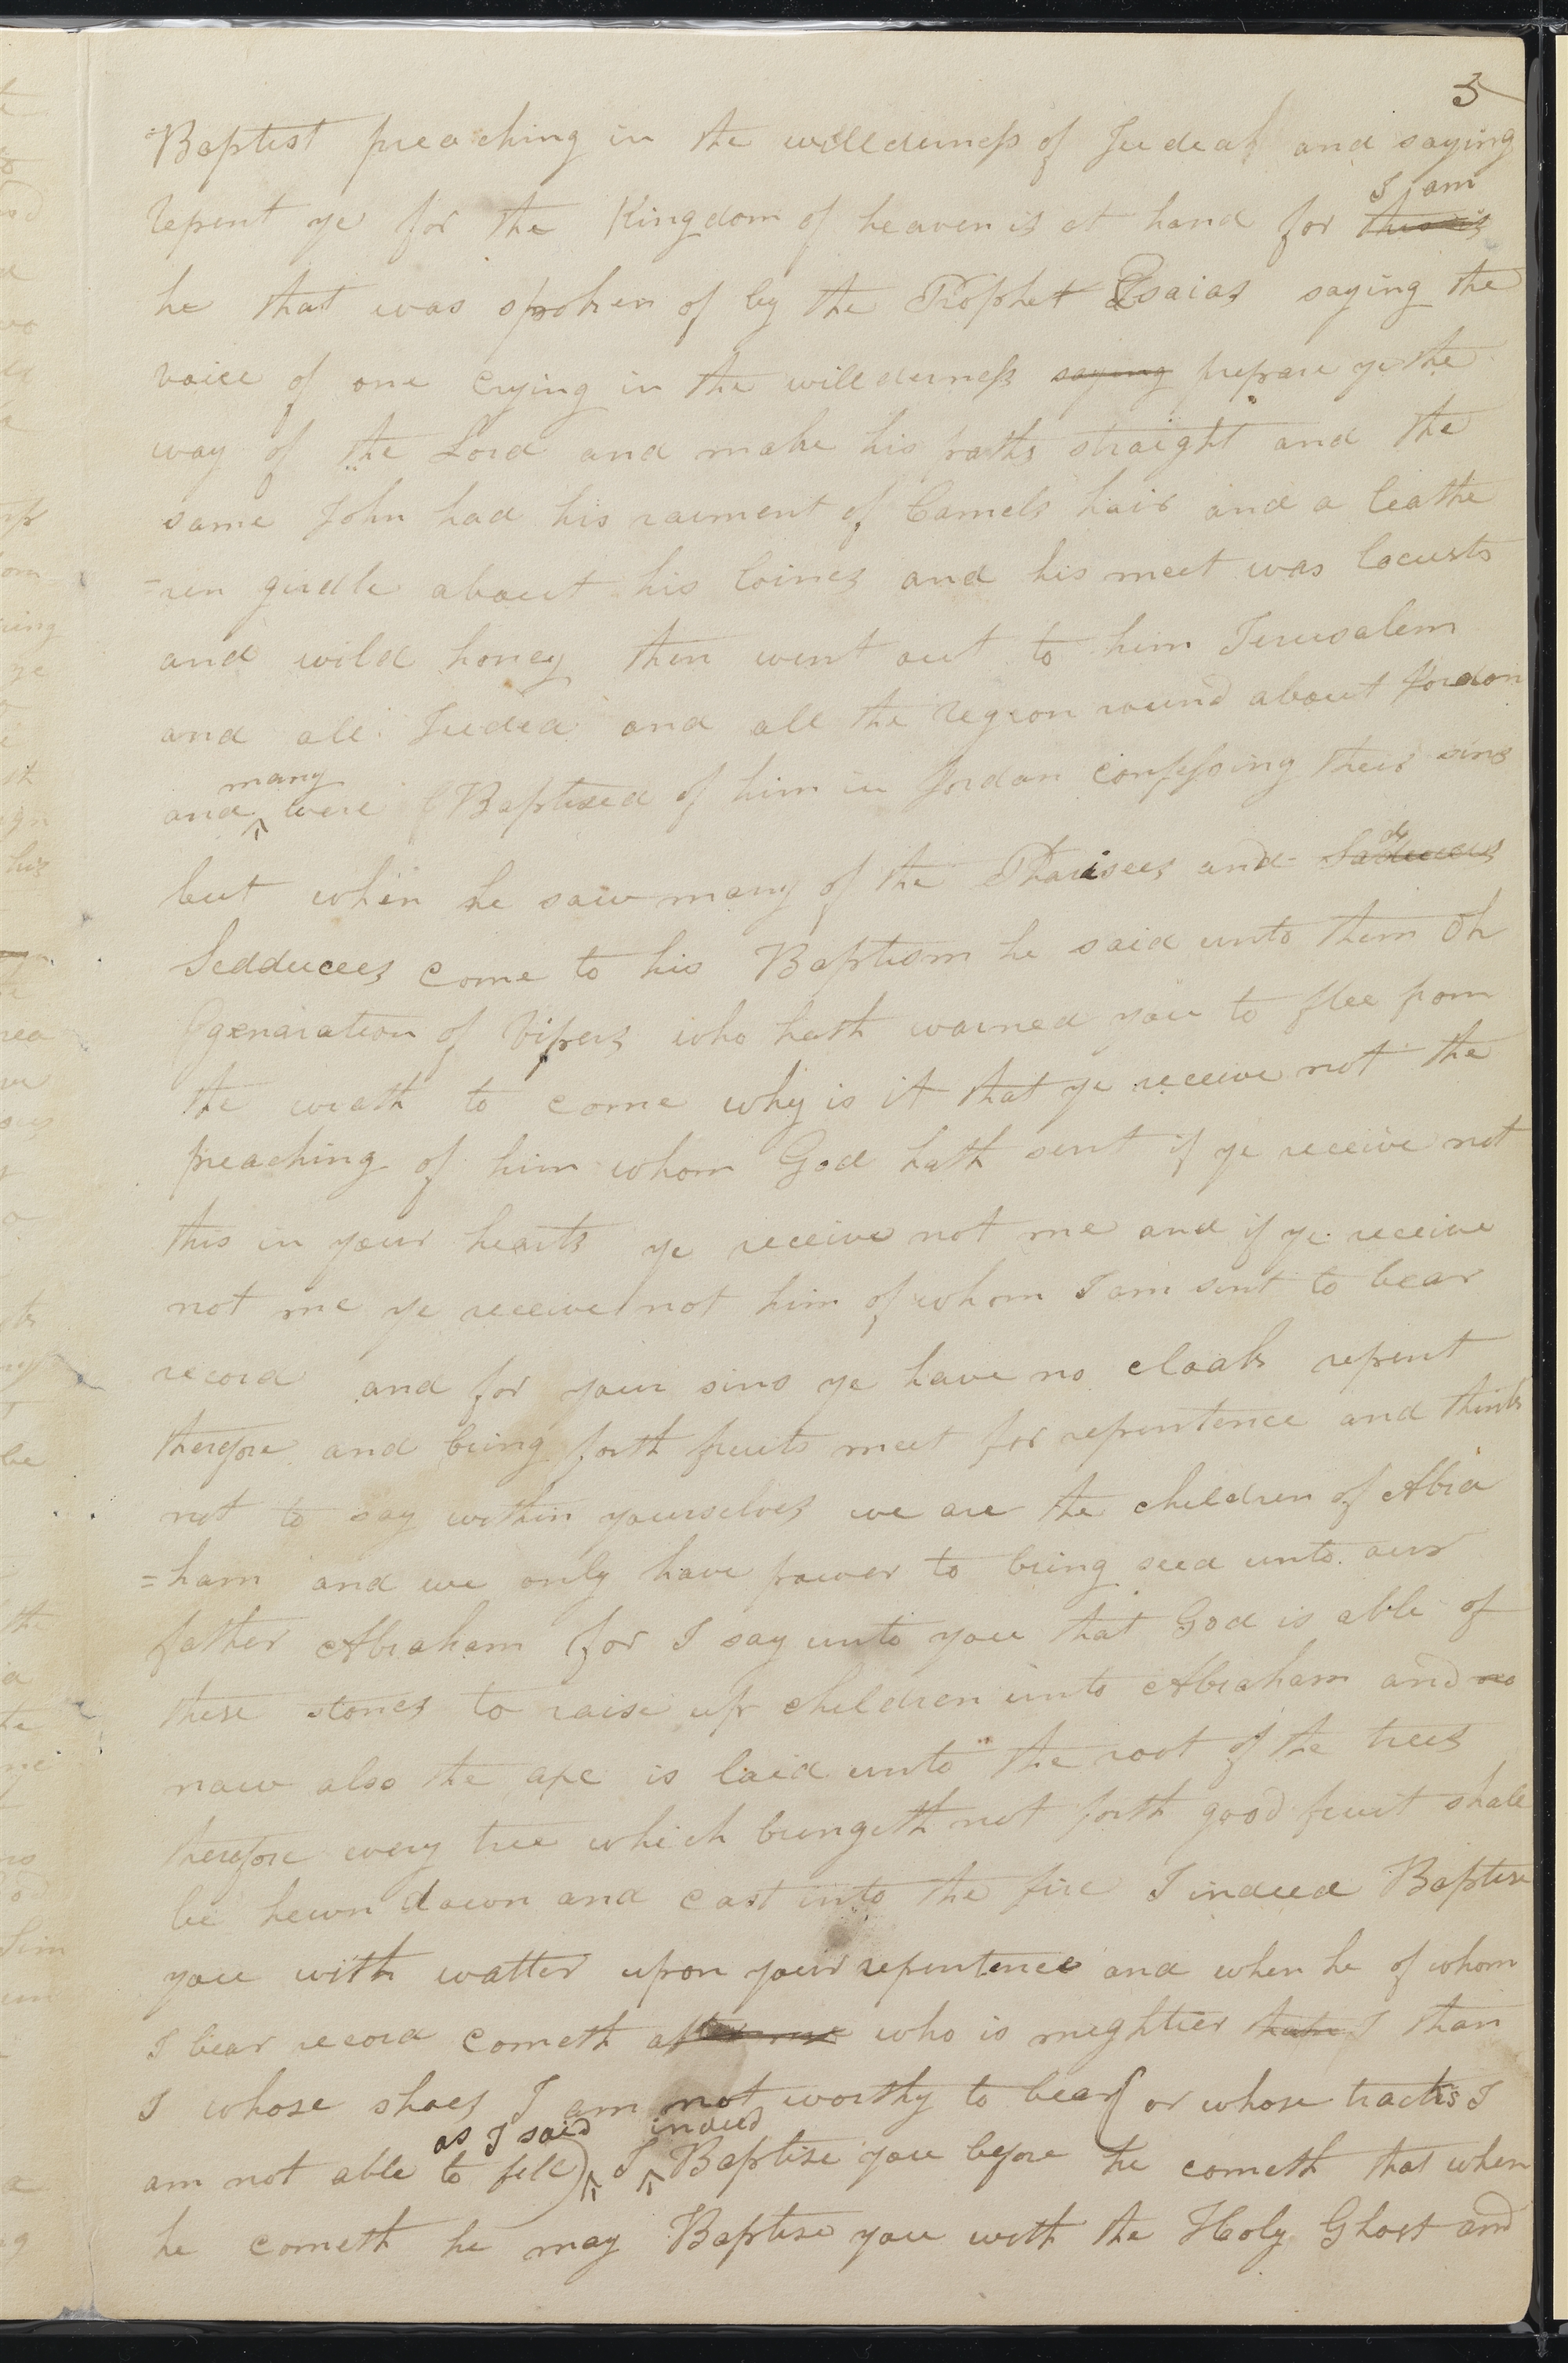 3
Baptist preaching in the willderness of Judeah and saying
I am
repent ye for the Kingdom of heaven is at hand for this is
he that was spoken of by the Prophet Esaias saying the
voice of one crying in the willderness saying prepare ye the
way of the Lord and make his paths straight and the
same John had his raiment of Camels hair and a leathe
=ren girdle about his loines and his meet was locusts
and wild honey then went out to him Jerusalem
and all Judea and all the region round about Jordon
many
and were Baptised of him in Jordan confessing their sins
but when he saw many of the Pharisees and Saducees
Sedducees come to his Baptism he said unto them Oh
genaration of vipers who hath warned you to flee from
the wrath to come why is it that ye receive not the
preaching of him whom God hath sent if ye receive not
this in your hearts ye receive not me and if ye receive
not me ye receive not him of whom I am sent to bear
record and for your sins ye have no cloak repent
therefore and bring forth fruits meet for repentence and think
not to say within yourselves we are the children of Abra
=ham and we only have power to bring seed unto our
father Abraham for I say unto you that God is able of
these stones to raise up children unto Abraham and no
now also the axe is laid unto the root of the trees
therefore every tree which bringeth not forth good fruit shall
be hewn down and cast into the fire I indeed Baptise
you with watter upon your repentence and when he of whom
I bear record cometh after me who is mightier than I than
I whose shoes I am not worthy to bear (or whose tracks I
as I said indeed
am not able to fill) I Baptise you before he cometh that when
he cometh he may Baptise you with the Holy Ghost and